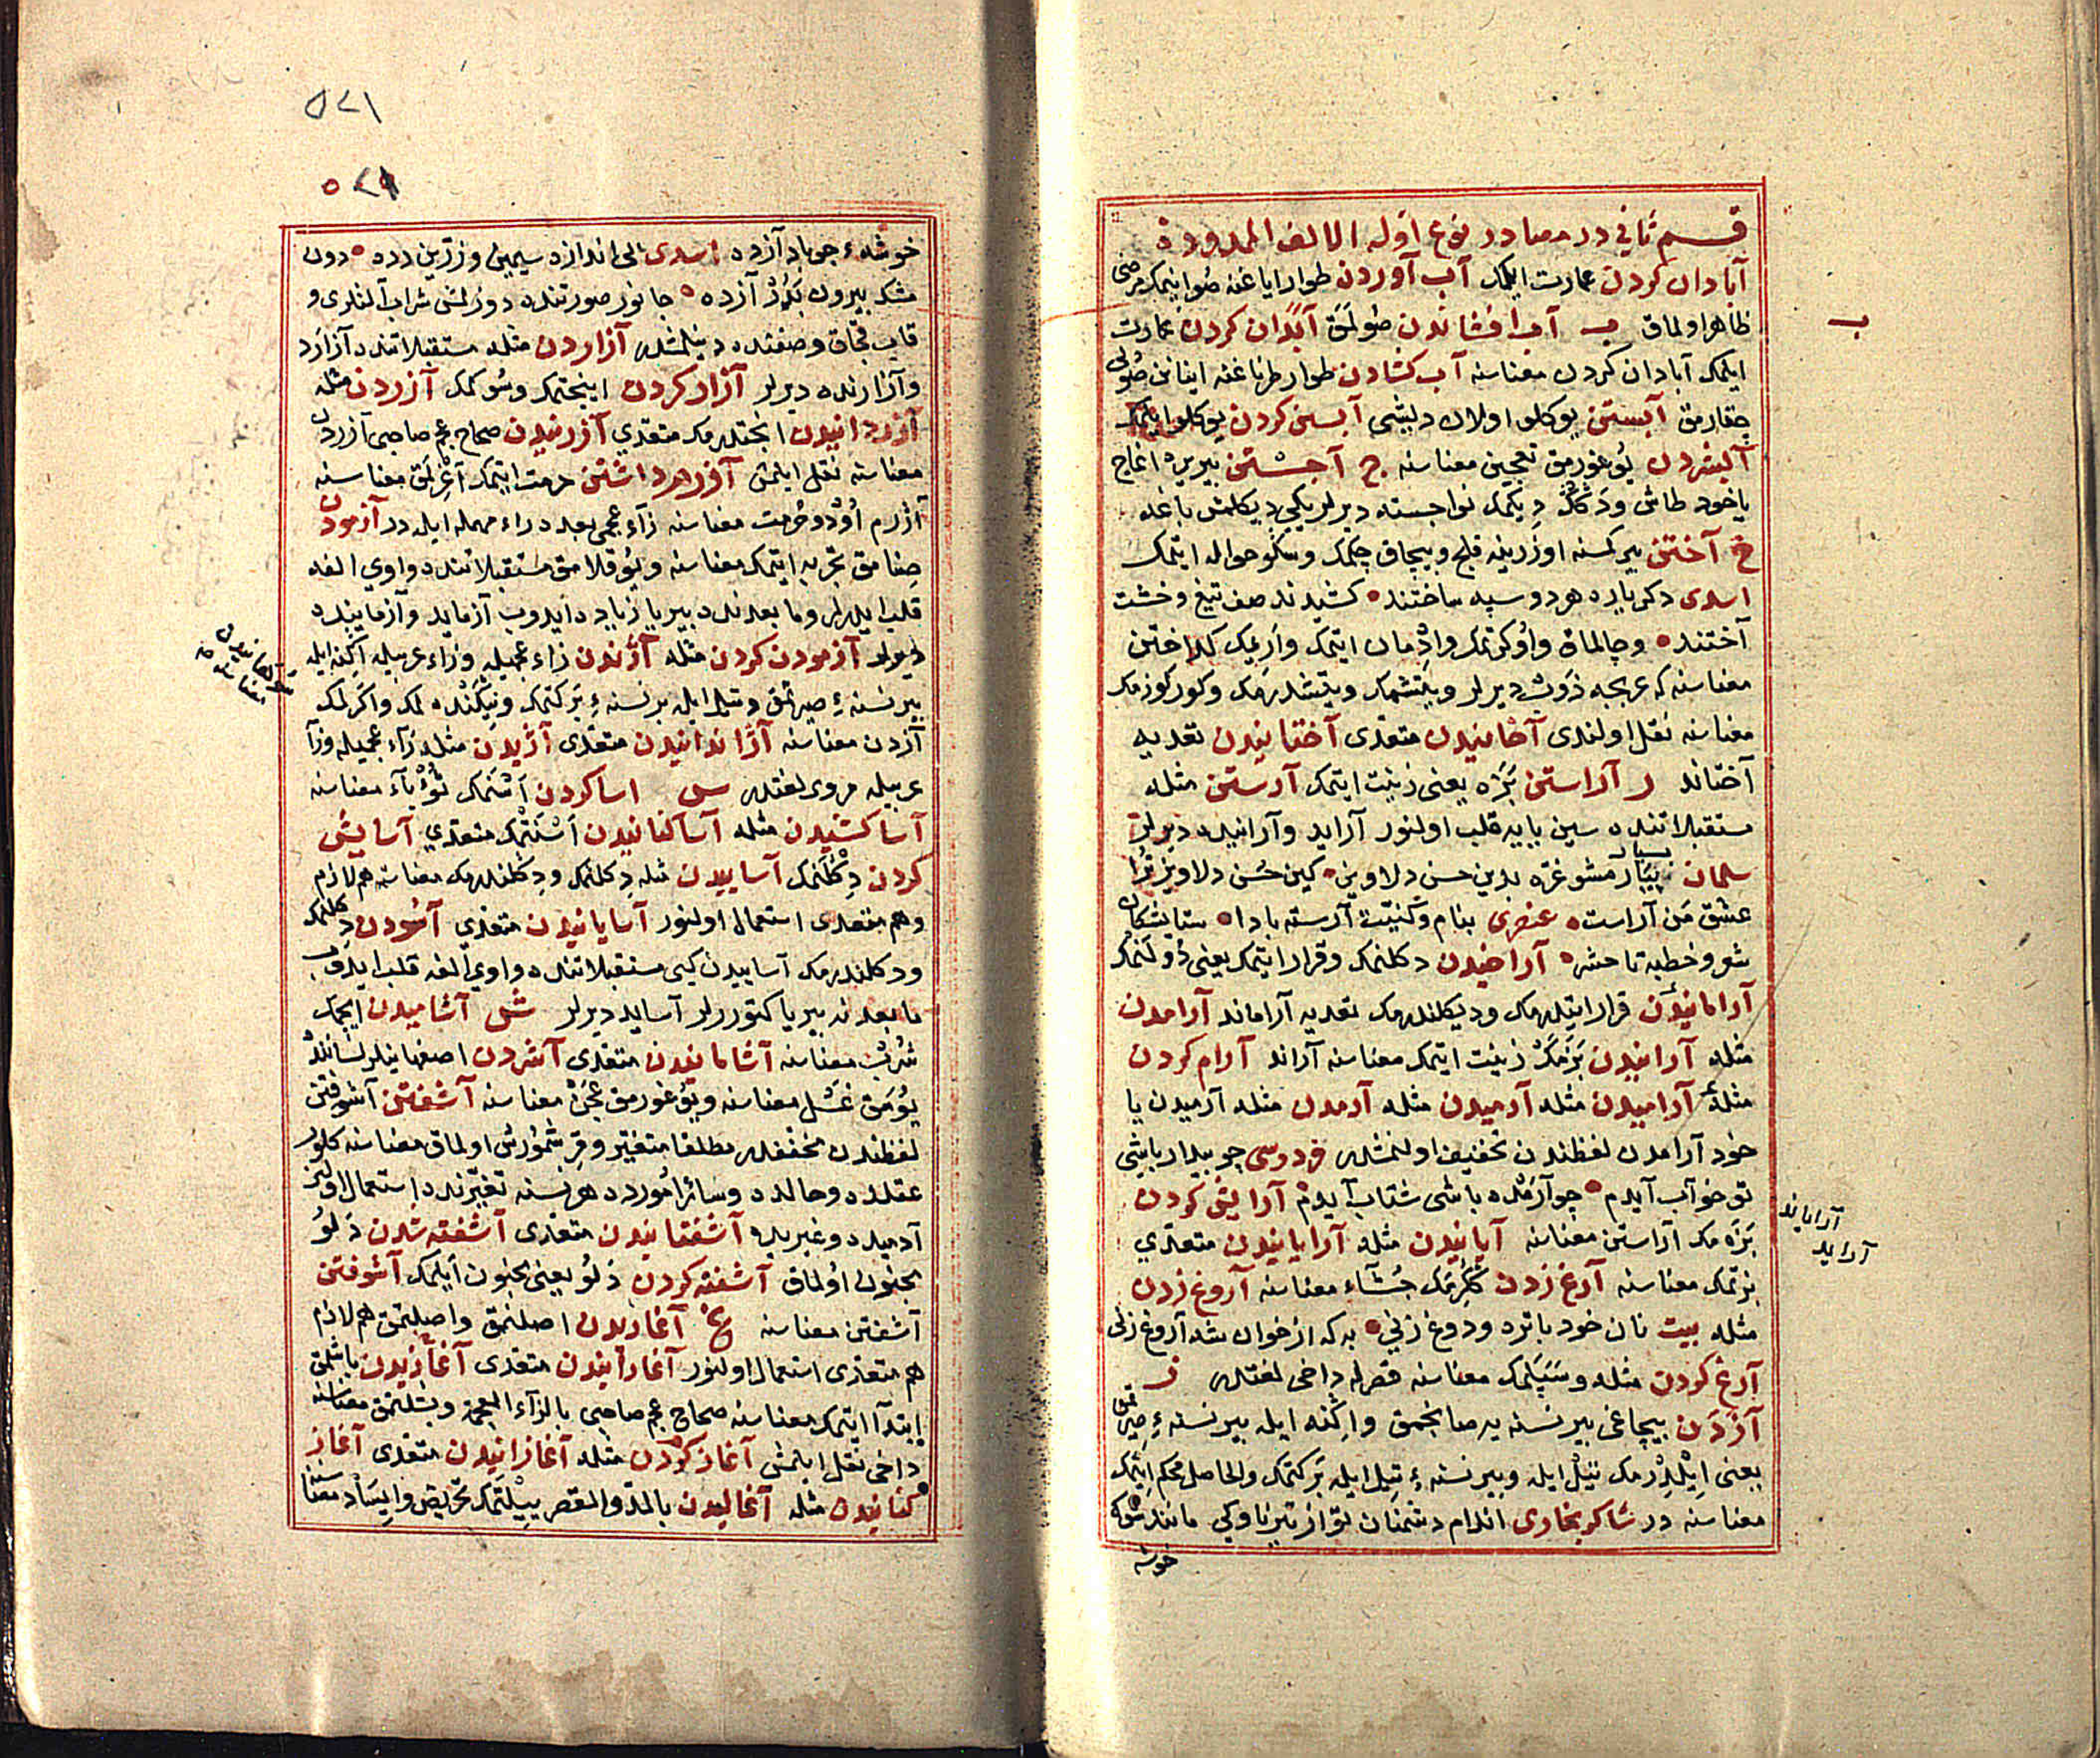 قسم ثانی در مصادر نوع اوله الالف الممدودة
آبادان کردن عمارت ایلمک آب آوردن طوار ایاغنه صو اینمک مرضی
ظاهر اولماق ب آب افشاندن صولمق آبدان کردن عمارت
ایلمک آبادان کردن معناسنه آب کشادن طوار طرناغنه اینانن صولی
چقارمق آبستن یوکلو اولان دیشی آبستن کردن یوکلو ایلمک
آبشردن یوغورمق تعجین معناسنه ج آجستن بیر یره اغاج
یاخود طاش ودکل دیکمک نواجسته دیرلر یکی دیکلمش باغه
خ آختن بیر کسنه اوزرینه قلج وبیچاق چکمک وسکو حواله ایتمک
اسدی دکرباره هر دو سپه ساختند کشیدند صف تیغ وخشت
آختند وچالماق واوکرتمک واذمان ایتمک واریمک کداختن
معناسنه که عربجه ذوب دیرلر ویتشمک ویتشدرمک وکورکوزمک
معناسنه نقل اولندی آختانیدن متعدی آختانیدن تعدیه
آختاند ر آراستن بزه یعنی زینت ایتمک آرستن مثله
مستقبلاتنده سین یایه قلب اولنور آراید وآراینده دیرلر
سلمان بسیار مشو غره بدین حسن دلاویز کین حسن دلاویز ترا
عشق من آراست عنصری بنام وکنیت آرسته بادا ستایشکاه
شعر وخطبه تا حشر آرامیدن دکلنمک وقرار ایتمک یعنی دولنمک
آرامانیدن قرار ایتدرمک ودیکلندرمک تعدیه آراماند آرامدن
مثله آرانیدن بزمک زینت ایتمک معناسنه آراند آرام کردن
مثله آرامیدن مثله آرمیدن مثله آرمدن مثله آرمیدن یا
خود آرامدن لفظندن تخفیف اولنمشدر فردوسی چو بیدار باشی
تو خواب آیدم چو آرمده باشی شتاب آیدم آرایش کردن
بزه مک آراستن معناسنه آیانیدن مثله آرایانیدن متعدی
بزتمک معناسنه آرغ زدن ککرمک جشآء معناسنه آروغ زدن
مثله بیت نان خود با تره ودوغ زنی به که از خوان شه آروغ زنی
آرغ کردن مثله وسپکمک معناسنه قصرله داخی لغتدر ز
آزدن بیچاغی بیر نسنه یه صانجمق واکنه ایله بیر نسنهء صیرتمق
یعنی ایلدرمک تیل ایله وبیر نسنهء تیل ایله برکتمک والحاصل محکم ایتمک
معناسنه در شاکر بخاری اندام دشمنان تو از تیر ناوکی مانند
خوشه
ب
آرایاند
آراید
۵۲۱
خوشهء جو باد آزده اسدی اندازه سیمین وزرین زده درون
مشک بیرون آزده جانور صورتنده دوزلمش شراب آلتلری و
قاب قجاق وصفنده دینلمشدر آزاردن مثله مستقبلاتنده آزارد
وآزارنده دیرلر آزار کردن اینجتمک وسوکمک آزردن مثله
آزردانیدن انجتدرمک متعدی آزرنیدن صحاح عجم صاحبی آزردن
معناسنه نقل ایلمش آزرم داشتن حرمت ایتمک آغرلمق معناسنه
آزرم اوذ وحرمت معناسنه زآء عجمی بعده راء مهمله ایله در آزمودن
صنامق تجربه ایتمک معناسنه ویوقلامق مستقبلاتنده واوی الفه
قلب ایدرلر وما بعدنده بیر یا زیاد ایدوب آزماید وآزماینده
دیولر آزمودن کردن مثله آژندن زاء عجمیله وزاء عربیله اکنه ایله
بیر نسنهء صیرتمق وتیل ایله بر نسنهء برکتمک
آزدن معناسنه آژاندانیدن متعدی آژیدن مثله زآء عجمیله وزآ
عربیله مروی لغتدر س اسا کردن اسنمک ثؤبآء معناسنه
آسا کشیدن مثله آسا کنانیدن اسنتمک متعدی آسایش
کردن دکلنمک آساییدن مثله دکلنمک ودکلندرمک معناسنه هم لازم
وهم متعدی استعمال اولنور آسایانیدن متعدی آسودن دکلنمک
ودکلندرمک آساییدن کبی مستقبلاتنده واوی الفه قلب ایدوب
ما بعدنه بیر یا کتوررلر آساید دیرلر ش آشامیدن ایچمک
شرب معناسنه آشامانیدن متعدی آشردن اصفهانیلر لسانند
یومق غسل معناسنه ویوغورمق عجن معناسنه آشفتن آشوفتن
لفظندن مخففدر مطلقا متغیر وقرشمورش اولماق معناسنه کلور
عقلده وحالده وسائر اموردہ هر نسنه تغیرنده استعمال اولنور
آدمیده وغیریده آشفتانیدن متعدی آشفته شدن دلو
مجنون اولماق آشفته کردن دلو یعنی مجنون ایلمک آشوفتن
آشفتن معناسنه غ آغاریدن اصلنمق واصلتمق هم لازم
هم متعدی استعمال اولنور آغارانیدن متعدی آغازیدن باشلمق
ابتدآ ایتمک معناسنه صحاح عجم صاحبی بالزآء المعجمه وبشلتمق معناسنه
داخی نقل ایلمش آغاز کردن مثله آغازانیدن متعدی آغاز
کنانیدن مثله آغالیدن بالمد والقصر بیسلتمک تحریض وایساد معناسنه